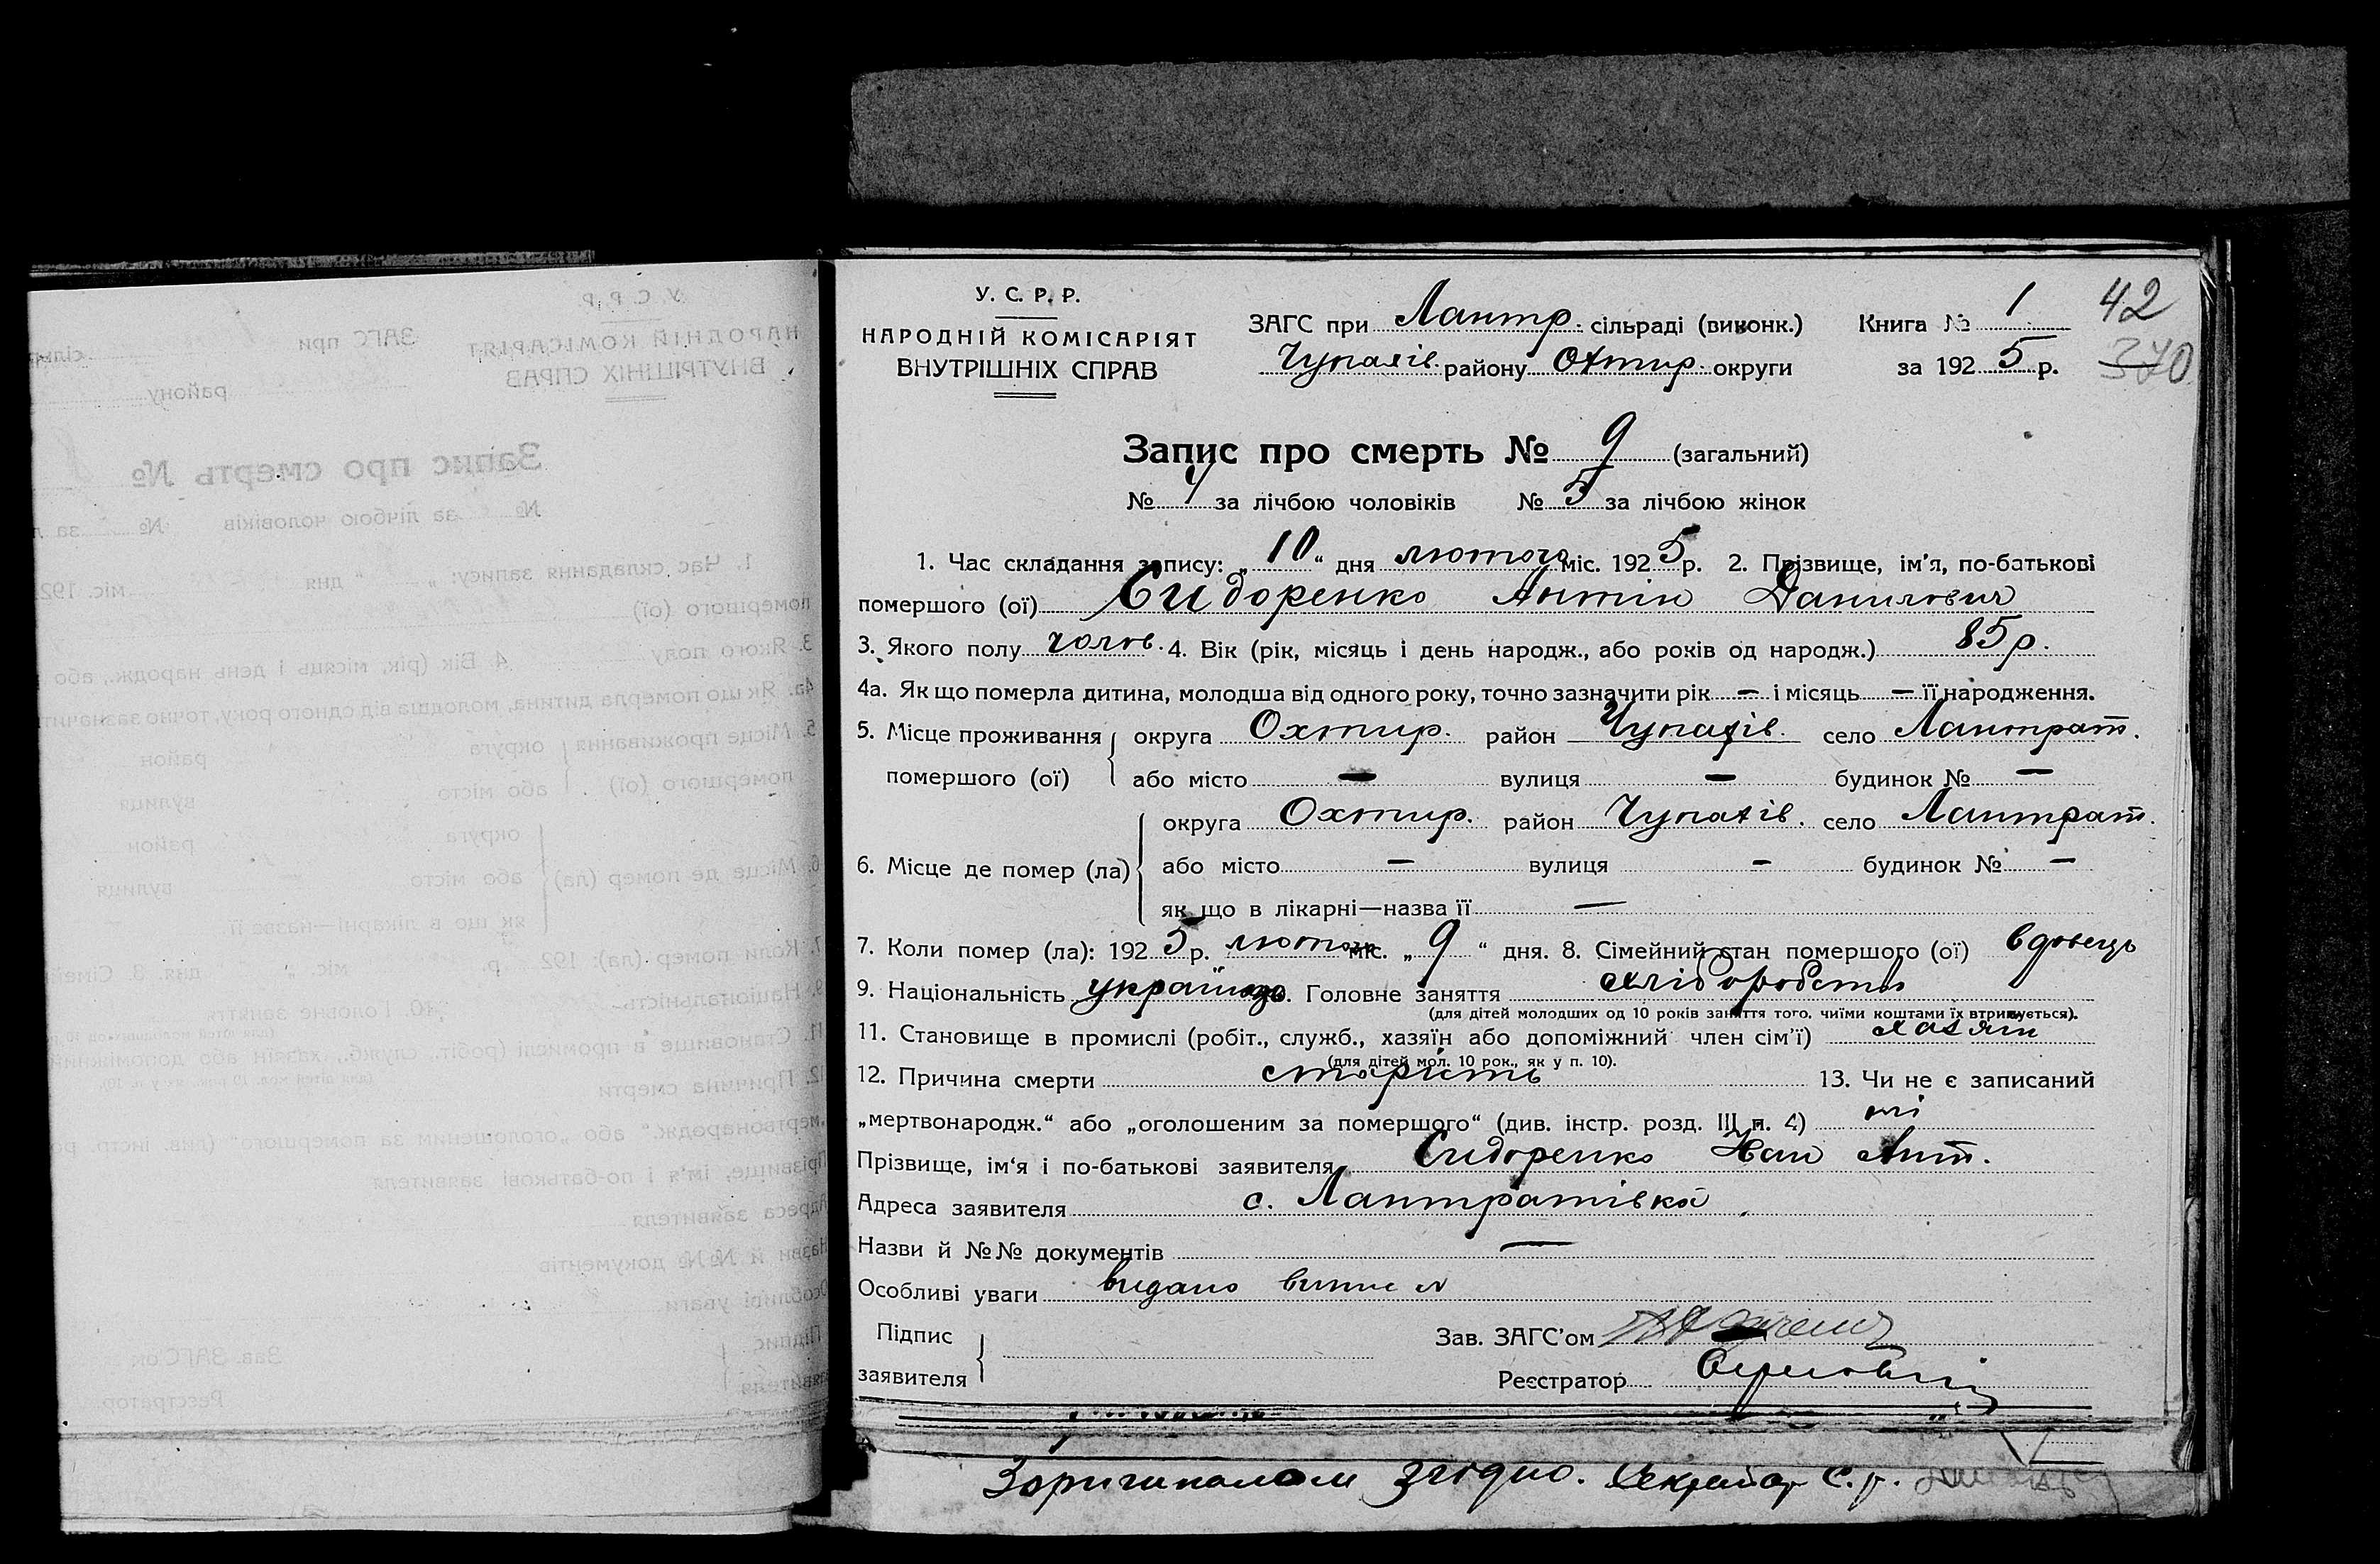 У. С. Р. Р.
НАРОДНІЙ КОМІСАРІЯТ
ВНУТРІШНІХ СПРАВ
ЗАГС при Лантр. сільраді (виконк.)
Чупахів. району Охтир. округи
Книга № 1
за 1925 р.
42
370
Запис про смерть № 9 (загальний)
№ 4 за лічбою чоловіків № 5 за лічбою жінок
1. Час складання запису: „10“ дня лютого міс. 1925 р. 2. Прізвище, ім’я, по-батькові
помершого (ої) Сидоренко Антін Данилович
3. Якого полу чолов. 4. Вік (рік, місяць і день народж., або років од народж.) 85 р.
4а. Як що померла дитина, молодша від одного року, точно зазначити рік — і місяць — її народження.
5. Місце проживання округа Охтир. район Чупахів. село Лантрат.
помершого (ої) або місто — вулиця — будинок № —
округа Охтир. район Чупахів. село Лантрат.
6. Місце де помер (ла) або місто — вулиця — будинок № —
як що в лікарні—назва її —
7. Коли помер (ла): 1925 р. лютого міс. „9“ дня. 8. Сімейний стан помершого (ої) вдовець
9. Національність україн. Головне заняття хліборобств
(для дітей молодших од 10 років заняття того, чиїми коштами їх втримується).
11. Становище в промислі (робіт., служб., хазяїн або допоміжний член сім’ї) хазяїн
(для дітей мол. 10 рок., як у п. 10).
12. Причина смерти старість 13. Чи не є записаний
„мертвонародж.“ або „оголошеним за помершого“ (див. інстр. розд. III п. 4) ні
Прізвище, ім‘я і по-батькові заявителя Сидоренко Іван Ант.
Адреса заявителя с. Лантратівка
Назви й №№ документів —
Особливі уваги видано випис
Підпис Зав. ЗАГС’ом
заявителя Реєстратор
Зоригиналом згідно. Секретар С. р.